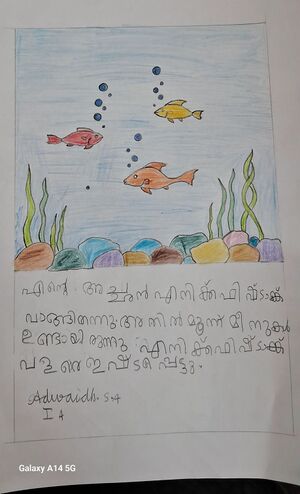 എന്റെ അച്ഛൻ എനിക്ക് ഫിഷ്ടാങ്ക്
വാങ്ങിതന്നു. അതിൽ മൂന്ന് മീനുകൾ
ഉണ്ടായിരുന്നു. എനിക്ക് ഫിഷ്ടാങ്ക്
വളരെ ഇഷ്ടപ്പെട്ടു.
Adwaidh. S.A
I A
Galaxy A14 5G